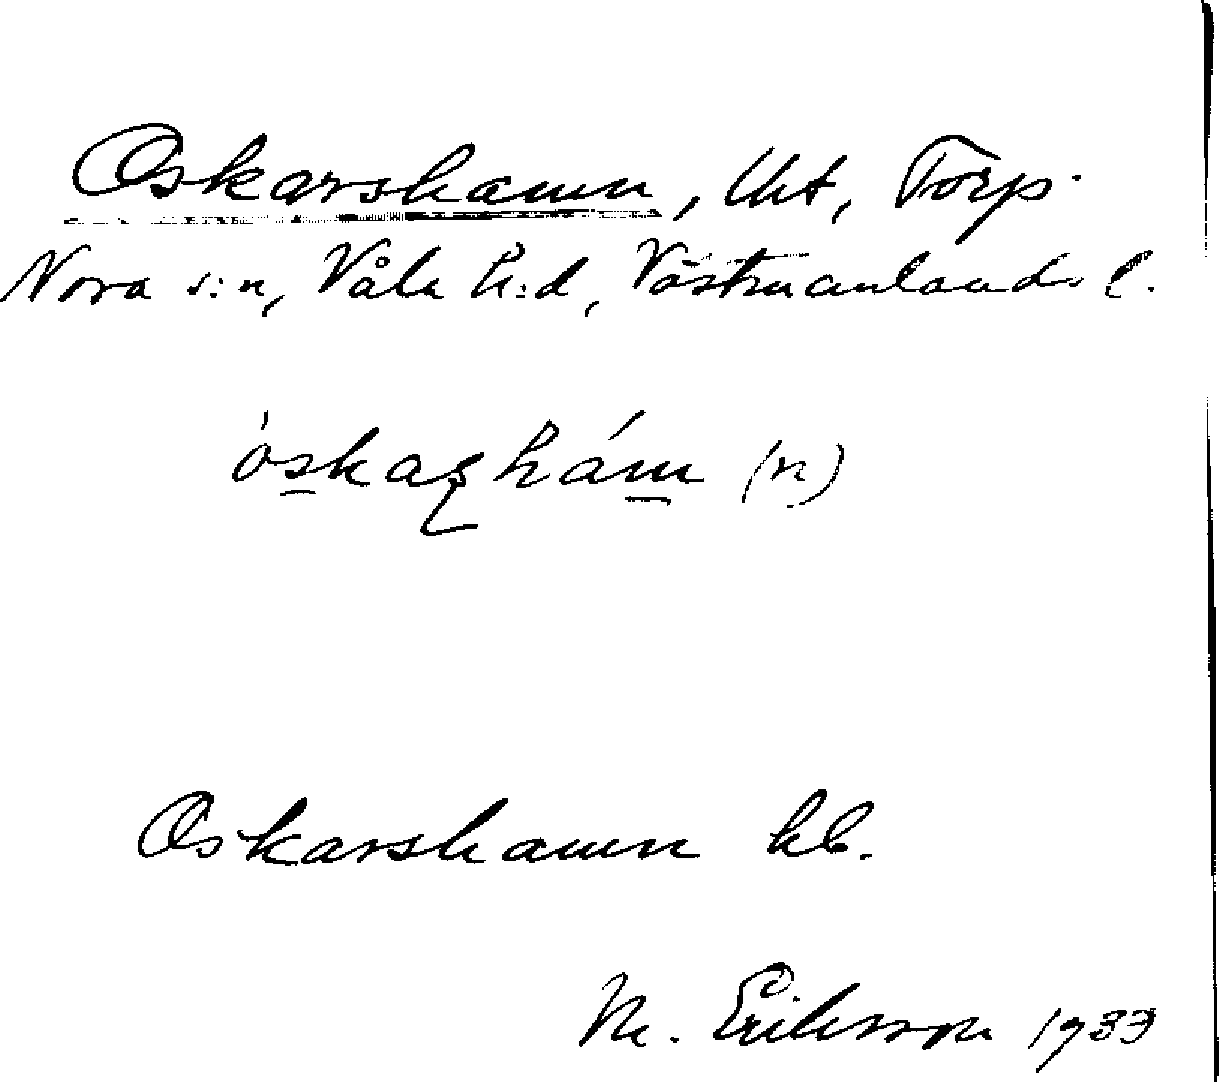 Oskarshamn, Uht, Torp.
Nora s:n, Våla h:d, Västmanlands l.
hám (n)
Oskarshamn hb.
M. Eriksson 1933